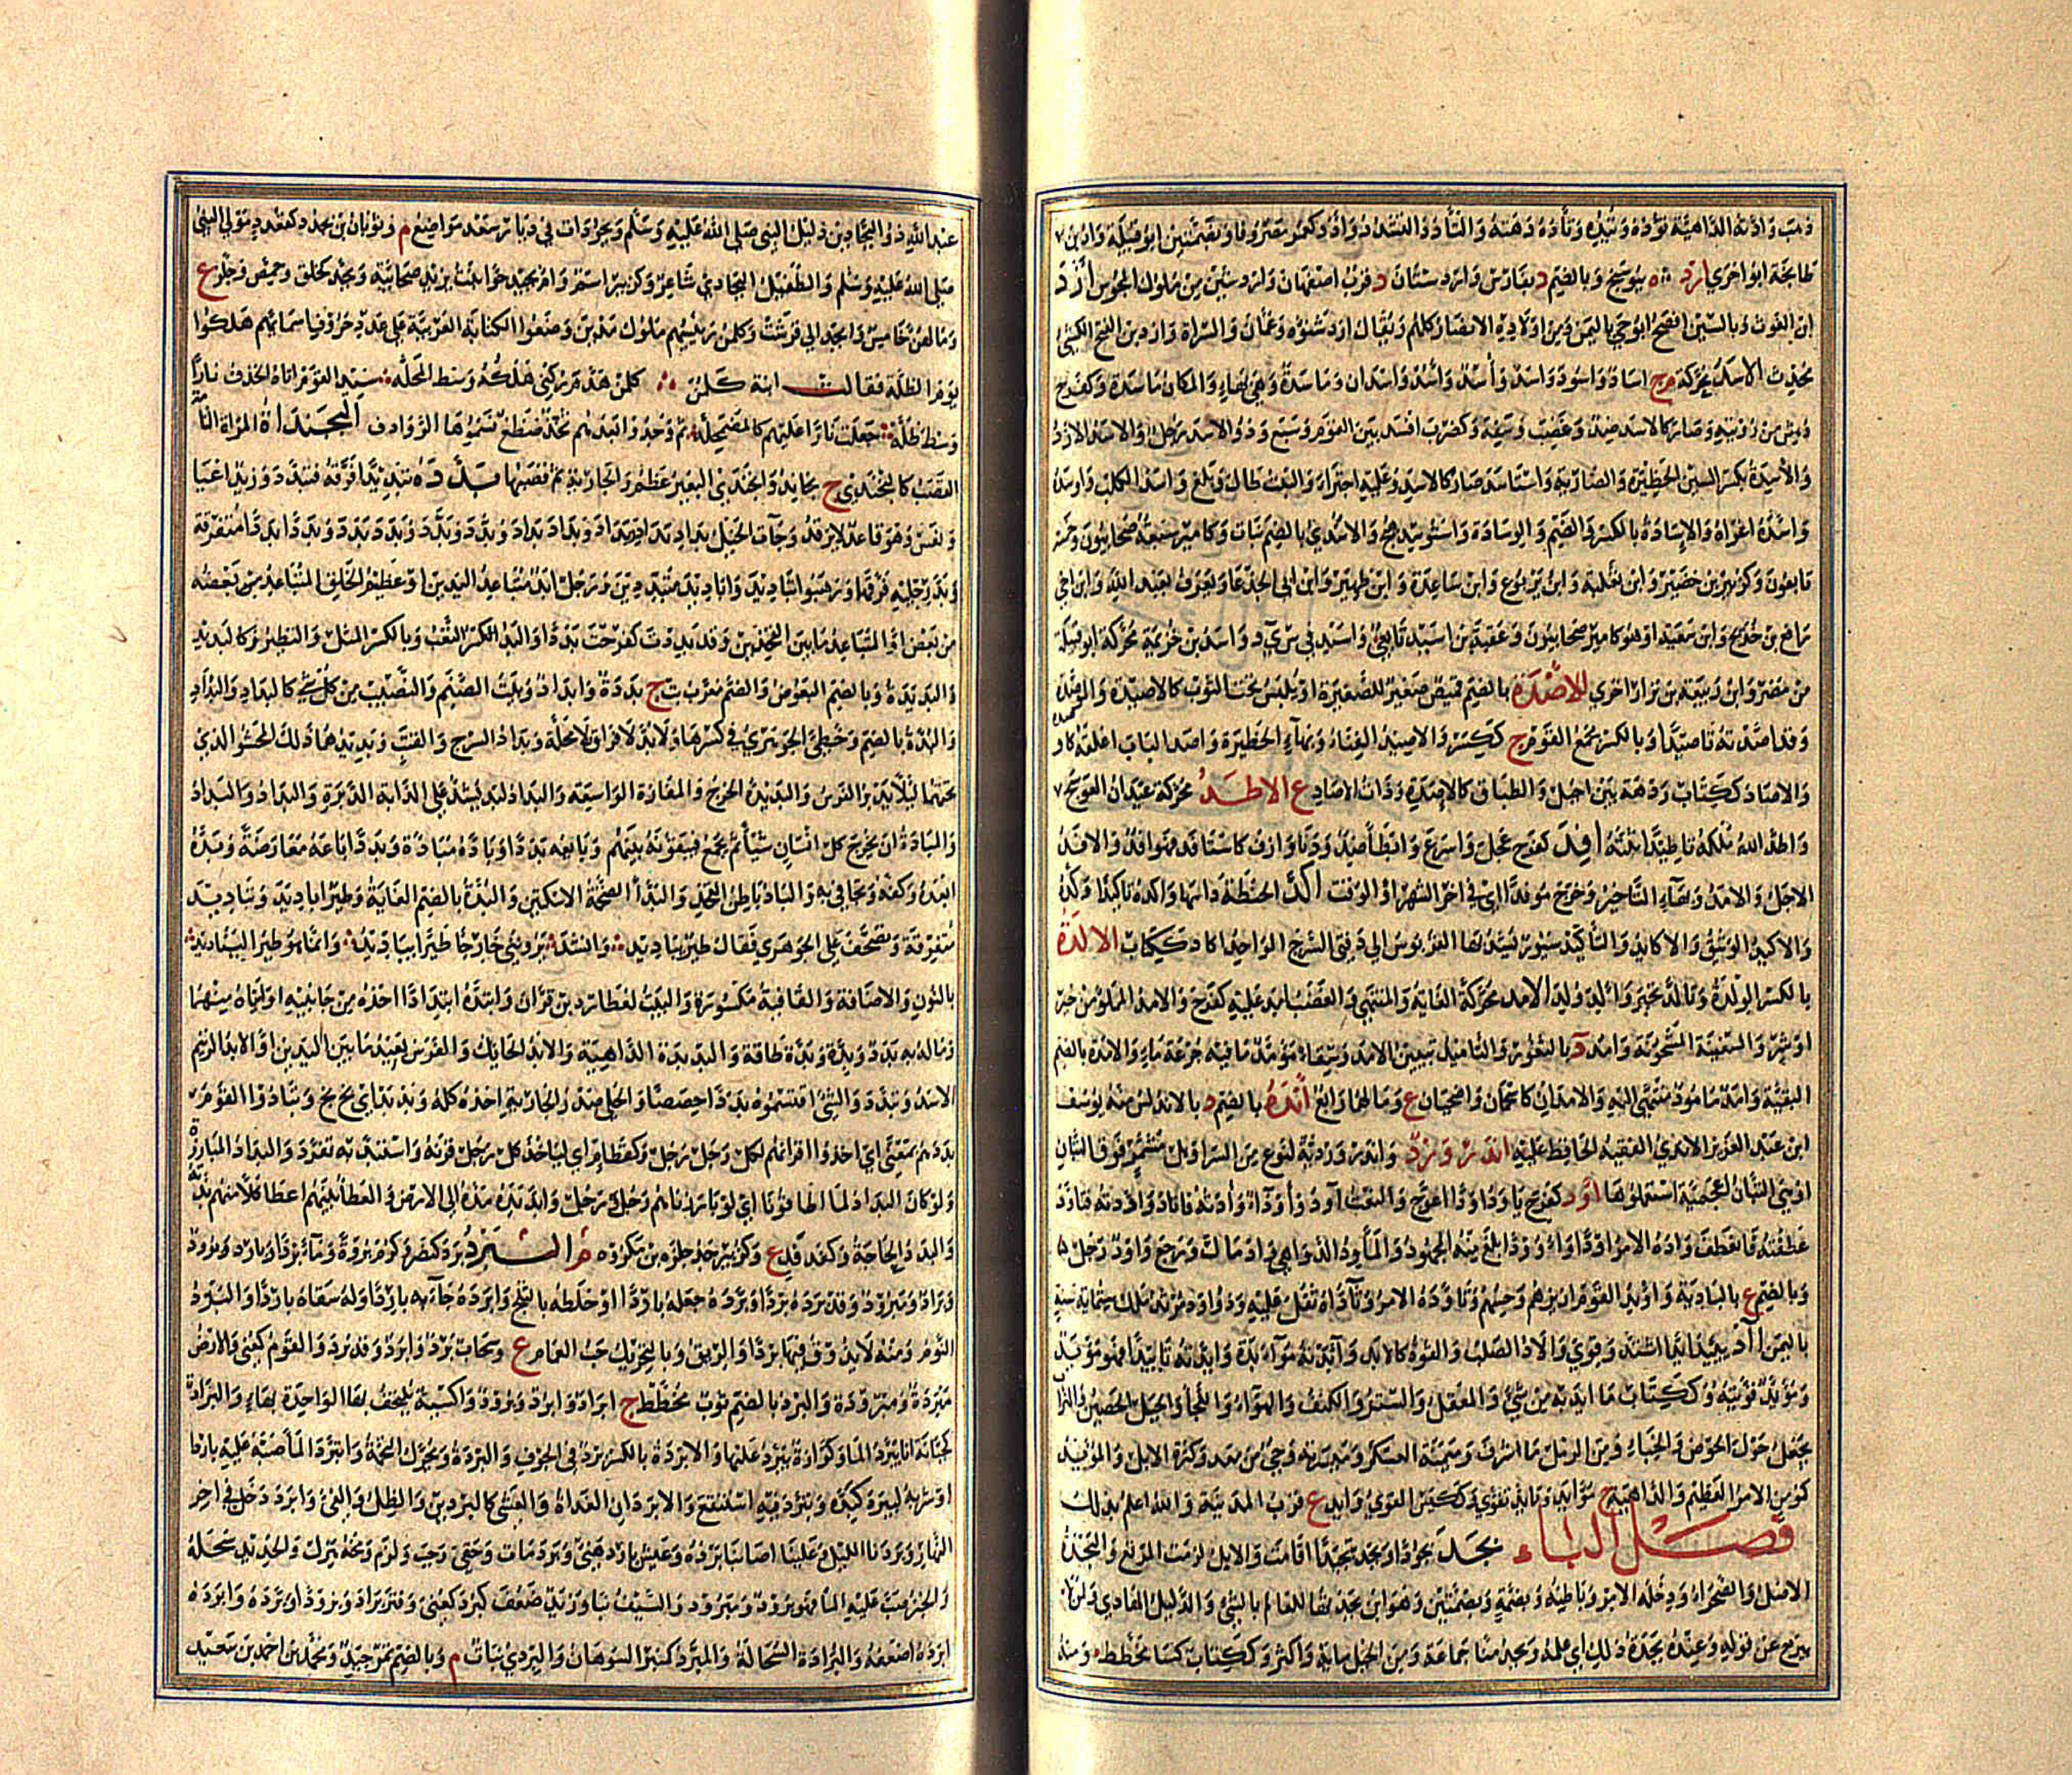 ذهب وادته الداهية تؤده وتئده وتأده دهته والتأدد التشدد وادد كعمر مصروفا وبضمتين ابو قبيلة واد بن
طابخة ابو اخرى ارد ه ببوشنج وبالضم د بفارس واردستان د قرب اصفهان واردشير من ملوك المجوس أزد
ابن الغوث وبالسين افصح ابو حي باليمن ومن اولاده الانصار كلهم ويقال ازد شنؤه وعمان والسراة وازد بن الفتح الكشي
محدث الاسد محركة م ج اساد واسود واسد وأسد وآسد واسدان وماسدة وهي بهاء والمكان ماسدة وكفرح
دهش من رؤيته وصار كالاسد ضد وغضب وسفه وكضرب افسد بين القوم وسبع وذو الاسد رجل والاسد الازد
والاسدة بكسر السين الحظيرة والضارية واستاسد صار كالاسد وعليه اجترأ والنبت طال وبلغ واسد الكلب واوسده
واسده اغراه والإسادة بالكسر والضم والوسادة واستوسد هيج والاسدي بالضم نبات وكامير سبعة صحابيون وخمسة
تابعون وكزبير بن حضير وابن ثعلبة وابن يربوع وابن ساعدة وابن ظهير وابن ابي الجدعا ويعرف بعبد الله وابن اخي
رافع بن خديج وابن سعيد او هو كامير صحابيون وعقبة بن اسيد تابعي واسيد في س ي د واسد بن خزيمة محركة ابو قبيلة
من مضر وابن ربيعة بن نزار اخرى الاصدة بالضم قميص صغير للصغيرة او يلبس تحت الثوب كالاصيدة والموصدة
وقد اصدته تاصيدا وبالكسر مجمع القوم ج ككسر والاصيد الفناء وبهآء الحظيرة واصد الباب اغلقه كاوصده
والاصاد ككتاب ردهة بين اجبل والطباق كالاصدة وذات الاصاد ع الاطد محركة عيدان العوسج
واطد الله ملكه تاطيدا ثبته افد كفرح عجل واسرع وابطأ ضد ودنا وازف كاستافد فهو افد والافد
الاجل والامد وبهاء التاخير وخرج موفدا اي في اخر الشهر او الوقت اكد الحنطة داسها واكده تاكيدا وكده
والاكيد الوثيق والاكايد والتأكيد سيور يشد بها القربوس الى دفتي السرج الواحد اكاد ككتاب الالدة
بالكسر الولدة وتالد تحير وألد ولد الامد محركة الغاية والمنتهى والغضب امد عليه كفرح والامد المملو من خير
او شر والسفينة المشحونة وامد د بالثغور والتاميد تبيين الامد وسقاء مؤمد ما فيه جرعة ماء والامدة بالضم
البقية وامد مامود منتهى اليه والامدان كاسحمان واضحيان ع وما لهما رابع اندة بالضم د بالاندلس منه يوسف
ابن عبد العزيز الاندي الفقيه الحافظ عليه اندر ورد واندر وردية لنوع من السراويل مشمر فوق التبان
او هي التبان عجمية استعملوها اود كفرح ياود اودا اعوج والنعت آود وأودآء وأدته فاناد واودته فتاود
عطفته فانعطف واده الامر اودا واوودا بلغ منه المجهود والمآود الدواهي واد مالت ورجع واود رجل
وبالضم ع بالبادية واويد القوم ازيزهم وحسهم وتاوده الامر وتآداه ثقل عليه وذو اود مرثد ملك ستماية سنة
باليمن آد يئيد ايدا اشتد وقوي والاد الصلب والقوة كالايد وآيدته مؤايدة وايدته تاييدا فهو مؤيد
ومؤيد قويته وككتاب ما ايد به من شئ والمعقل والستر والكنف والهوآء واللجأ والجبل الحصين والتراب
يجعل حول الحوض والخباء ومن الرمل ما اشرف وميمنة العسكر وميسرته وحي من معد وكثرة الابل والمؤيد
كمؤمن الامر العظيم والداهية ج موايد وتايد تقوى وككيس القوي وايد ع قرب المدينة والله اعلم بذلك
فصل الباء بجد بجودا وبجد تبجيدا اقام والابل لزمت المرتع والبجدة
الاصل والصحراء ودخلة الامر وباطنه وبضمة وبضمتين وهو ابن بجدتها للعالم بالشئ والدليل الهادي ولمن لا
يبرح عن قوله وعنده بجدة ذلك اي علمه وبجد منا جماعة ومن الخيل ماية واكثر وككتاب كسا مخطط ومنه
عبد الله ذو البجادين دليل النبي صلى الله عليه وسلم وبجودات في ديار سعد مواضع م وثوبان بن بجدد كقعدد مولى النبي
صلى الله عليه وسلم والطفيل البجادي شاعر وكزبير اسم وام بجيد حوا بنت يزيد صحابية وبجد كخلق وحمص وجلق ع
وما لهن خامس وابجد الى قرشت وكلمن رئيسهم ملوك مدين وضعوا الكتابة العربية على عدد حروف اسمائهم هلكوا
يوم الظلة فقالت ابنة كلمن كلمن هدم ركني هلكه وسط المحله سيد القوم اتاه الحتف نارا
وسط ظله جعلت نارا عليهم كالمضمحله ثم وجدوا بعدهم ثخذ ضظغ فسموها الروادف البخنداة المراة التامة
القصب كالبخندى ج بخاند وابخندى البعير عظم والجارية تم قصبها بدده تبديدا فرقه فتبدد وزيد اعيا
ونعس وهو قاعد لا يرقد وجآت الخيل بداد بداد وبداد بداد وبدد بدد وبددا بددا متفرقة
وبد رجليه فرقها وذهبوا اباديد وتباديد متبددين ورجل ابد متباعد اليدين او عظيم الخلق المتباعد بعضه
من بعض او المتباعد ما بين الفخذين وقد بددت كفرحت بددا والبد بالكسر التعب وبالكسر المثل والنظير كالبديد
والبديدة وبالضم البعوض والصنم معرب بت ج بددة وابداد وبيت الصنم والنصيب من كل شئ كالبداد والبداد
والبدة بالضم وخطئ الجوهري في كسرها ولا بد لا فراق لا محالة وبداد السرج والقتب وبديدهما ذلك المحشو الذي
تحتهما ليلا يدبر الفرس والبديدة الخرج والمفازة الواسعة والبداد لبد يشد على الدابة الدبرة والبداد والبداد
والبادة ان يخرج كل انسان شيأ ثم يجمع فينفقونه بينهم وبايعه بددا وباده مبادة وبدادا باعه معارضة وبده
ابعده وكفه وتجافى به والباد باطن الفخذ والبدآ الضخمة الاسكتين والبدة بالضم الغاية وطير اباديد وتباديد
متفرقة وتصحف على الجوهري فقال طير يباديد وانشد يرونني خارجا طير يباديد وانما هو طير اليناديد
بالنون والاضافة والقافية مكسورة والبيت لعطارد بن قران وابتداه ابتدادا اخذه من جانبيه او اتياه منهما
وما له به بدد وبدة طاقة والبديدة الداهية والابد الحايك والفرس بعيد ما بين اليدين او الابد الزنيم
الاسد وتبدد والشئ اقتسموه بددا حصصا والحلي صدر الجارية اخذه كله وبد بد اي بخ بخ وتبادوا القوم
بددهم بمعنى اي اخذوا اقرانهم لكل رجل رجل وكقطام اي لياخذ كل رجل قرنه واستبد به تفرد والبداد المبارزة
ولو كان البداد لما اطاقونا اي لو بارزناهم رجل رجل وابد يده مدها الى الارض والعطا بينهم اعطا كلا منهم بدته
والبدد الحاجة وكفدفد ع وكزبير جد جلوه بن مكزوه البرد برد كنصر وكرم برودة ومآء برد وبارد وبرود
وبراد ومبرود وقد برده بردا وبرده جعله باردا او خلطه بالثلج وابرده جآء به باردا وله سقاه باردا والبرد
النوم ومنه لا يذوقون فيها بردا والريق وبالتحريك حب الغمام ع وسحاب برد وابرد وقد برد القوم كعني والارض
مبردة ومبرودة والبرد بالضم ثوب مخطط ج ابراد وابرد وبرود واكسية يلتحف بها الواحدة بهاء والبرادة
كجبانة اناء يبرد الما وكوارة يبرد عليها والابردة بالكسر برد في الجوف والبردة وتحرك التخمة وابترد الما صبه عليه باردا
او شربه ليبرد كبده وتبرد فيه استنقع والابردان الغداة والعشي كالبردين والظل والفئ وابرد دخل في اخر
النهار وبردنا الليل وعلينا اصابنا برده وعيش بارد هني وبرد مات وحقي وجب ولزم ومخه هزل والحديد سحله
والخبز صب عليه الما فهو برود ومبرود والسيف نبا وزيد ضعف كبرد كعني وفتر برادا وبرودا وبرده وابرده
ابرده اضعفه والبرادة السحالة والمبرد كمنبر السوهان والبردي نبات م وبالضم تمر جيد ومحمد بن احمد بن سعيد